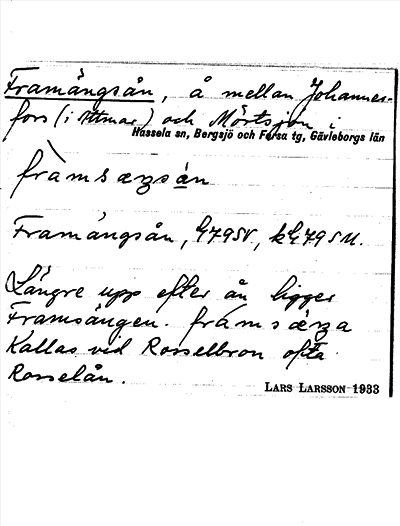 Framängsån, å mellan Johannes-
fors (i Attmar) och Mörtsjön i
Hassela sn, Bergsjö och Forsa tg, Gävleborgs län
Framångsån, G79SV, kG79SU.
Längre upp efter ån ligger
Framsängen.
Kallas vid Rosselbron ofta
Rosselån.
LARS LARSSON 1933